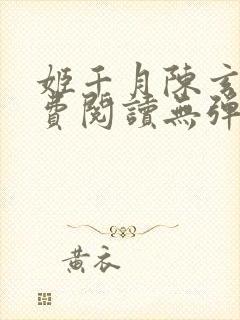 姬千月陳玄
費閱讀無彈
黃衣